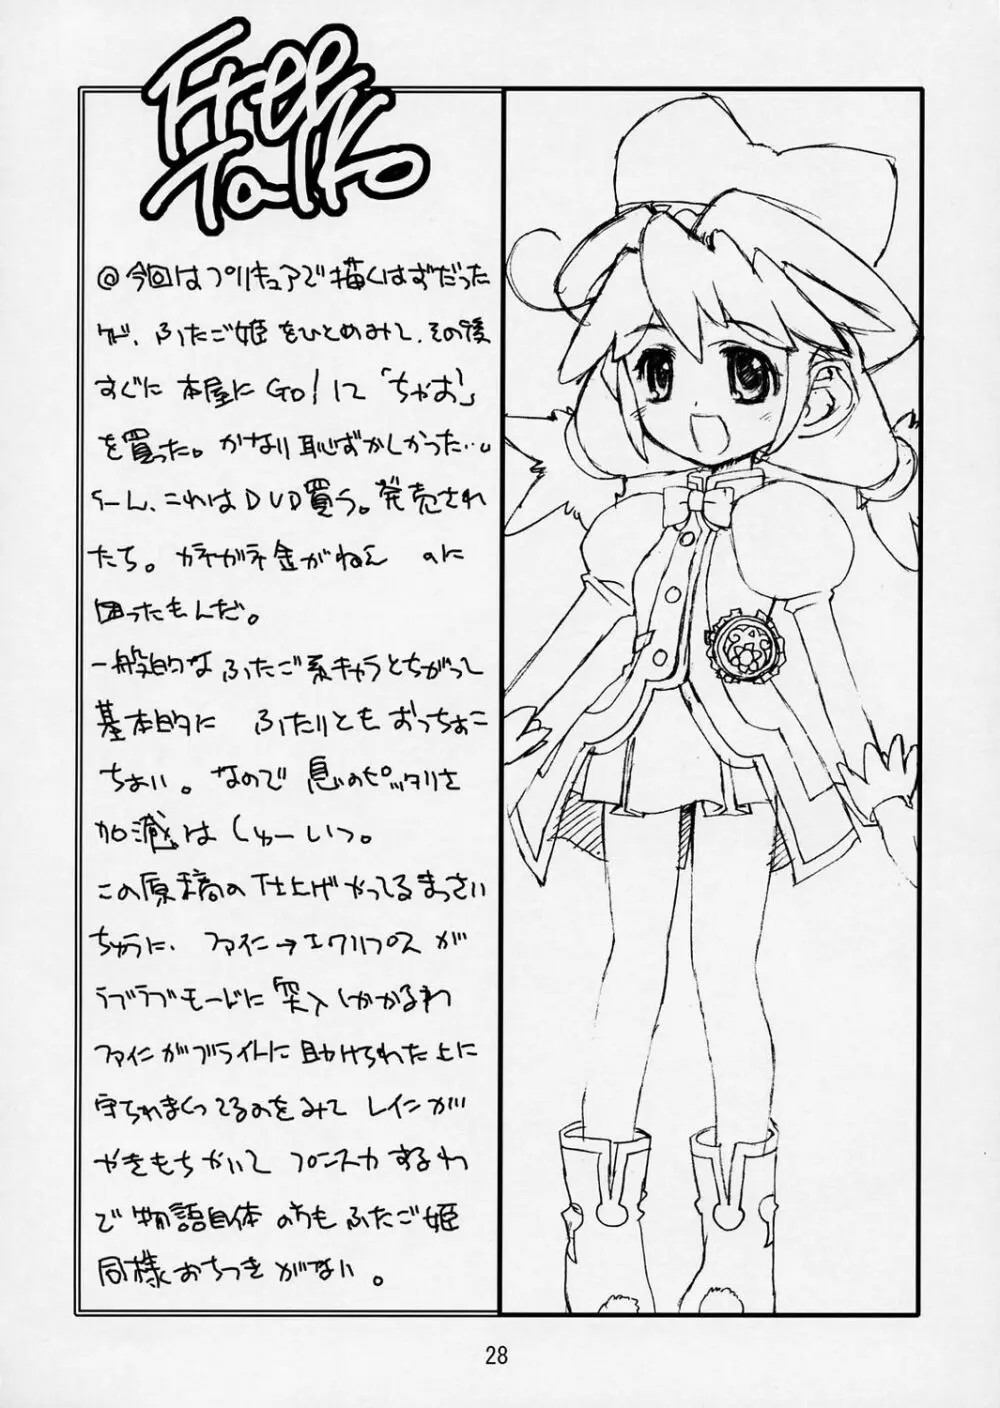 Free
Talk
@今回はプリキュアで描くはずだった
けど、ふたご姫をひとめみて、その後
すぐに本屋にGO!して「ちゃお」
を買った。かなり恥ずかしかった…。
うーん、これはDVD買う。発売され
たち。カネがネ金がねえ のに
困ったもんだ。
一般的なふたご系キャラとちがって
基本的に ふたりともおっちょこ
ちょい。なので 息のピッタリさ
加減はしゅーいつ。
この原稿の仕上げやってるまっさい
ちゅうに、ファイン→エクリプスが
ラブラブモードに突入しかかるわ
ファインがブライトに助けられた上に
守られまくってるのをみてレインが
やきもちかいて プンスカするわ
で物語自体の方もふたご姫
同様おちつきがない。
28